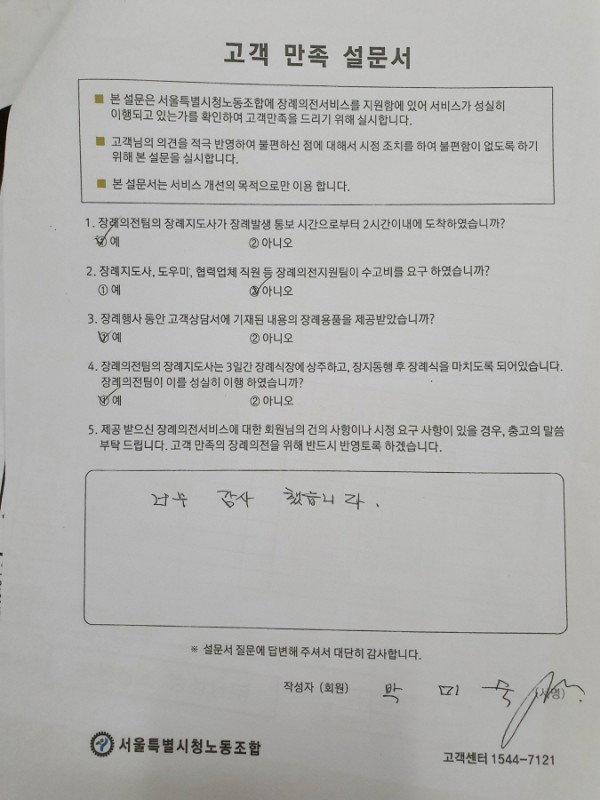 고객 만족 설문서
■ 본 설문은 서울특별시청노동조합에 장례의전서비스를 지원함에 있어 서비스가 성실히
이행되고 있는가를 확인하여 고객만족을 드리기 위해 실시합니다.
■ 고객님의 의견을 적극 반영하여 불편하신 점에 대해서 시정 조치를 하여 불편함이 없도록 하기
위해 본 설문을 실시합니다.
■ 본 설문서는 서비스 개선의 목적으로만 이용 합니다.
1. 장례의전팀의 장례지도사가 장례발생 통보 시간으로부터 2시간이내에 도착하였습니까?
① 예 ② 아니오
2. 장례지도사, 도우미, 협력업체 직원 등 장례의전지원팀이 수고비를 요구 하였습니까?
① 예 ② 아니오
3. 장례행사 동안 고객상담서에 기재된 내용의 장례용품을 제공받았습니까?
① 예 ② 아니오
4. 장례의전팀의 장례지도사는 3일간 장례식장에 상주하고, 장지동행 후 장례식을 마치도록 되어있습니다.
장례의전팀이 이를 성실히 이행 하였습니까?
① 예 ② 아니오
5. 제공 받으신 장례의전서비스에 대한 회원님의 건의 사항이나 시정 요구 사항이 있을 경우, 충고의 말씀
부탁 드립니다. 고객 만족의 장례의전을 위해 반드시 반영토록 하겠습니다.
너무 감사 했습니다.
※ 설문서 질문에 답변해 주셔서 대단히 감사합니다.
작성자 (회원) 박 미 (서명)
서울특별시청노동조합
고객센터 1544-7121